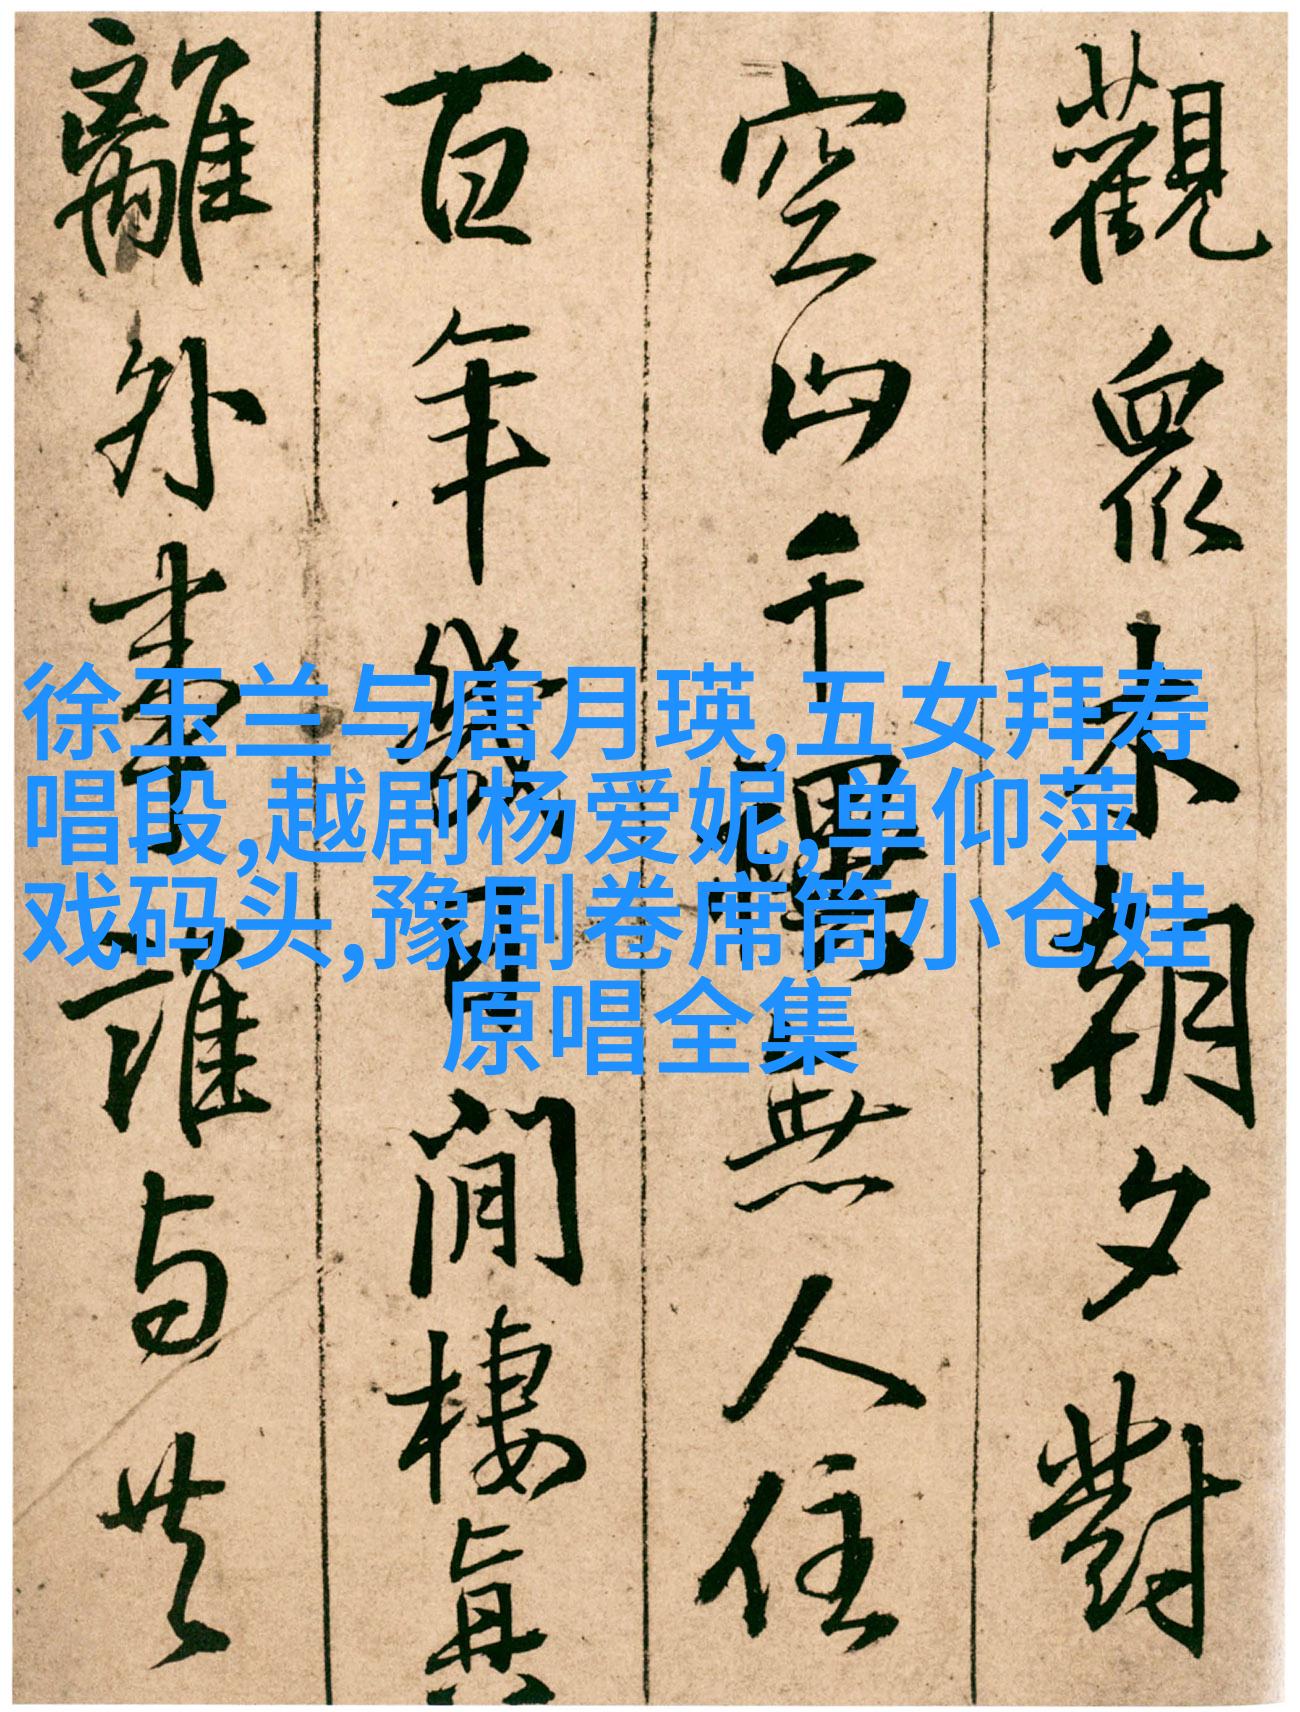 徐玉兰与唐月瑛,五女拜寿
唱段,越剧杨爱妮,单仰萍
戏码头,豫剧卷席筒小仓娃
原唱全集
觀眾朝夕對
空山千無人住
百年幾日閒棲真
離外事誰与共